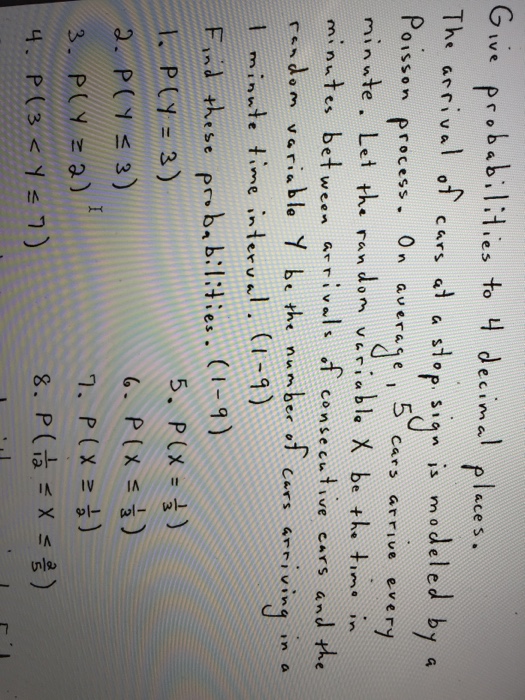 Give probabilities to 4 decimal places.
The arrival of cars at a stop sign is modeled by a
Poisson process. On average, 5 cars arrive every
minute. Let the random variable X be the time in
minutes between arrivals of consecutive cars and the
random variable Y be the number of cars arriving in a
1 minute time interval. (1-9)
Find these probabilities. (1-9)
1. P(Y = 3)
2. P(Y ≤ 3)
3. P(Y ≥ 2)
4. P(3 < Y ≤ 7)
5. P(X = 1/3)
6. P(X ≤ 1/3)
7. P(X ≥ 1/2)
8. P(1/12 ≤ X ≤ 2/5)